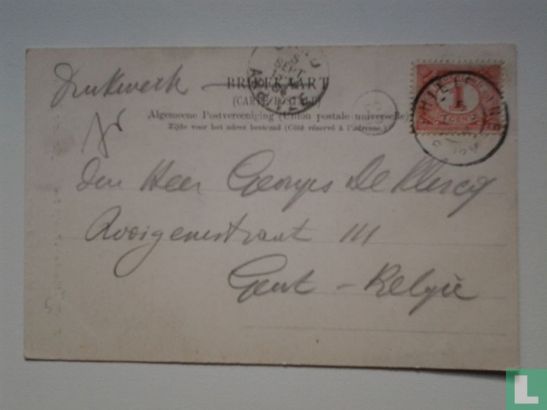 Drukwerk
BRIEFKAART
(CARTE POSTALE)
Algemeene Postvereeniging (Union postale universelle)
Zijde voor het adres bestemd (Côté réservé à l'adresse.)
1
CENT
den Heer Georges De Clercq
Rooigemstraat 111
Gent - België